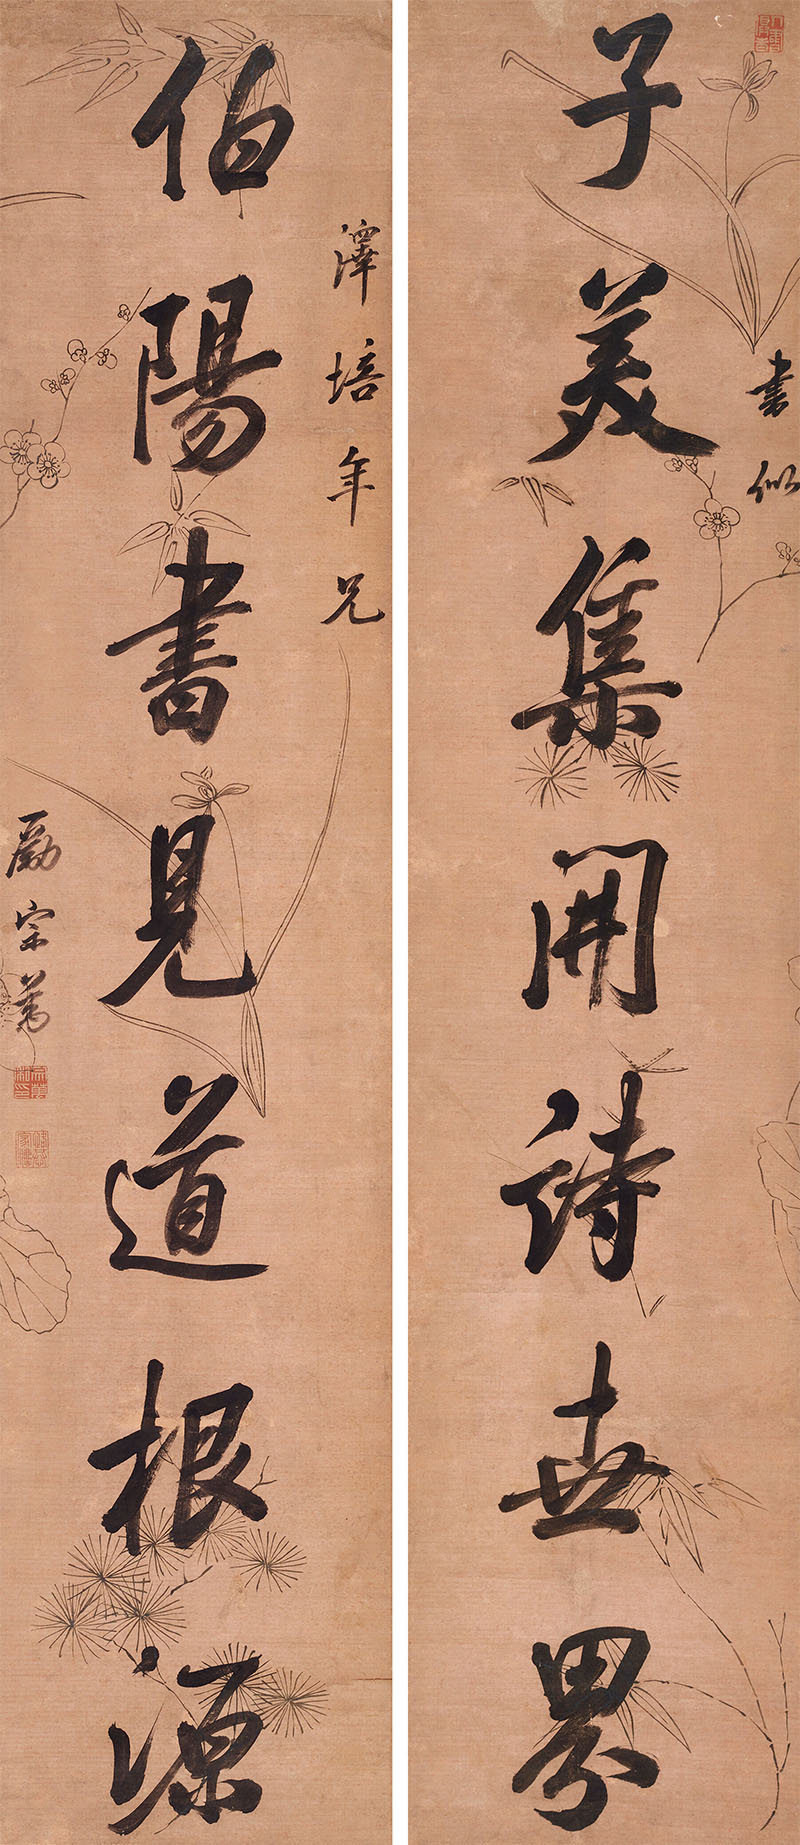 子美集開詩世界
書似
伯陽書見道根源
澤培年兄
勵宗萬